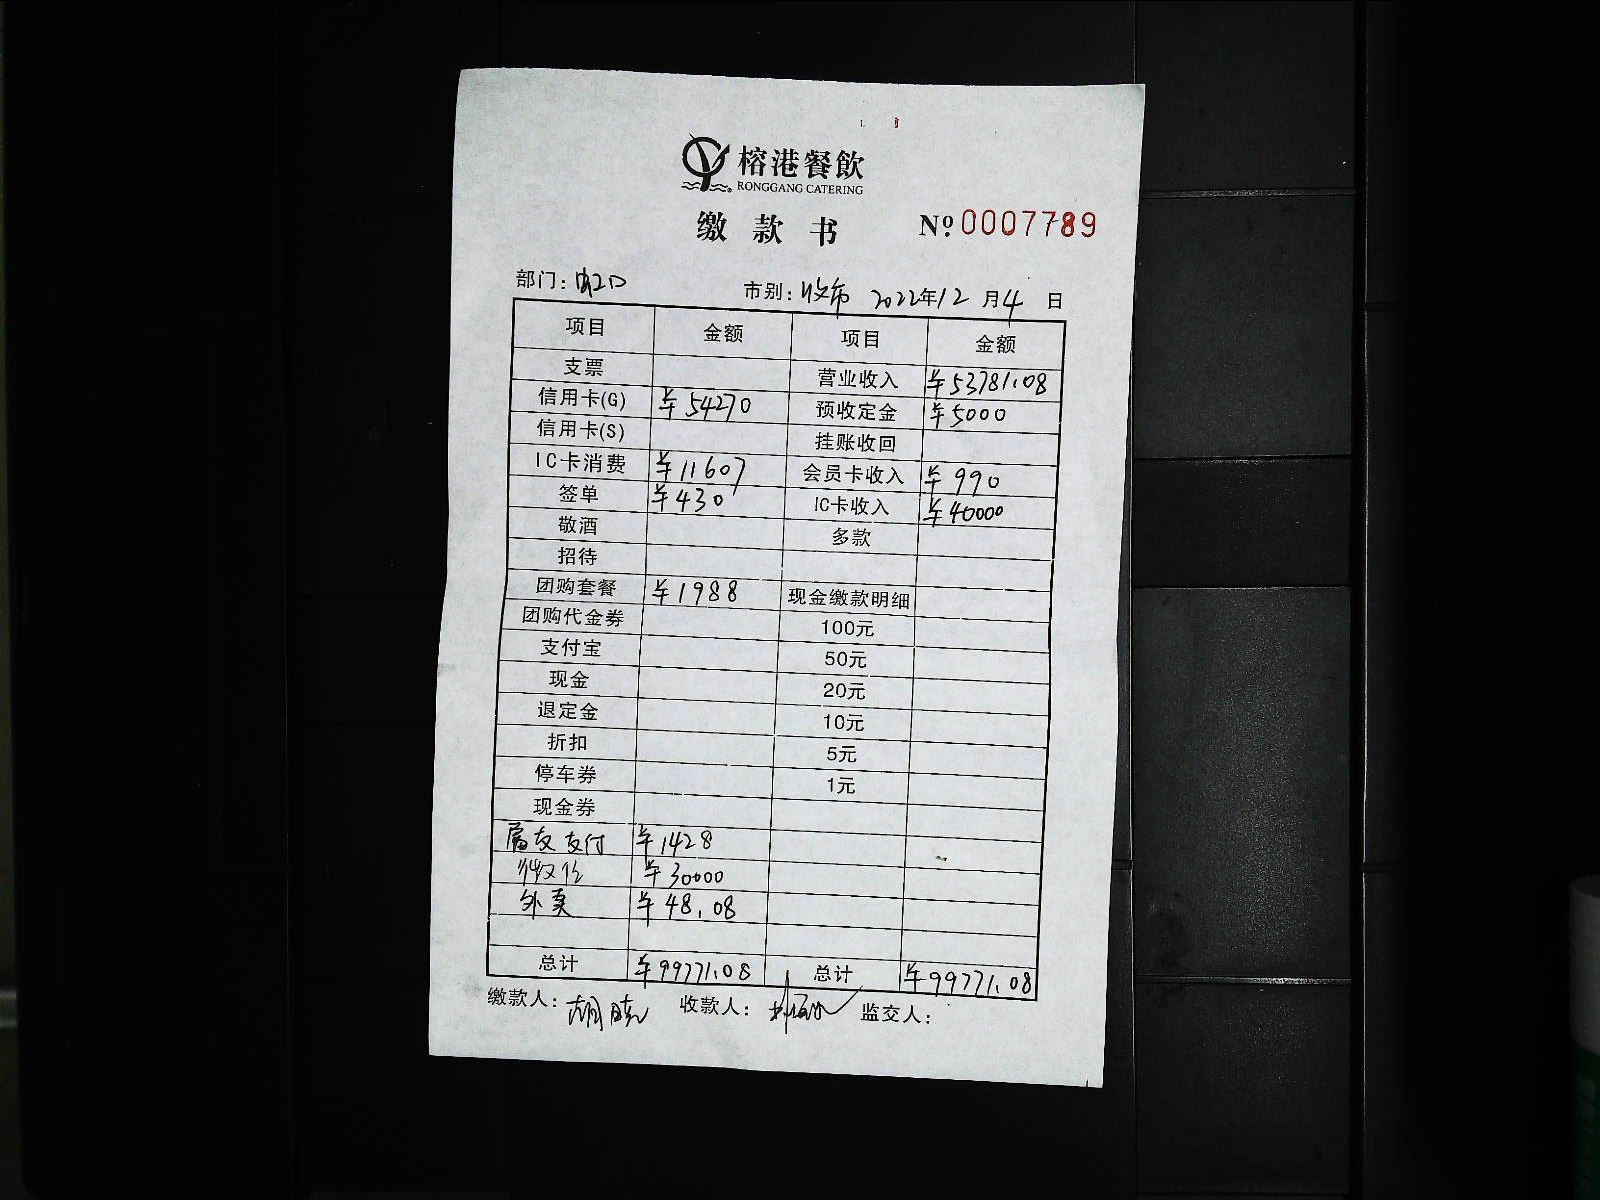 榕港餐飲
RONGGANG CATERING
缴款书 №0007789
部门: 市别: 收市 2022年12月4日
项目 金额 项目 金额
支票 营业收入 ¥53781.08
信用卡(G) ¥54270 预收定金 ¥5000
信用卡(S) 挂账收回
IC卡消费 ¥11607 会员卡收入 ¥990
签单 ¥430 IC卡收入 ¥40000
敬酒 多款
招待
团购套餐 ¥1988 现金缴款明细
团购代金券 100元
支付宝 50元
现金 20元
退定金 10元
折扣 5元
停车券 1元
现金券
支付 ¥1428
¥30000
外卖 ¥48.08
总计 ¥99771.08 总计 ¥99771.08
缴款人: 胡晓 收款人: 监交人: